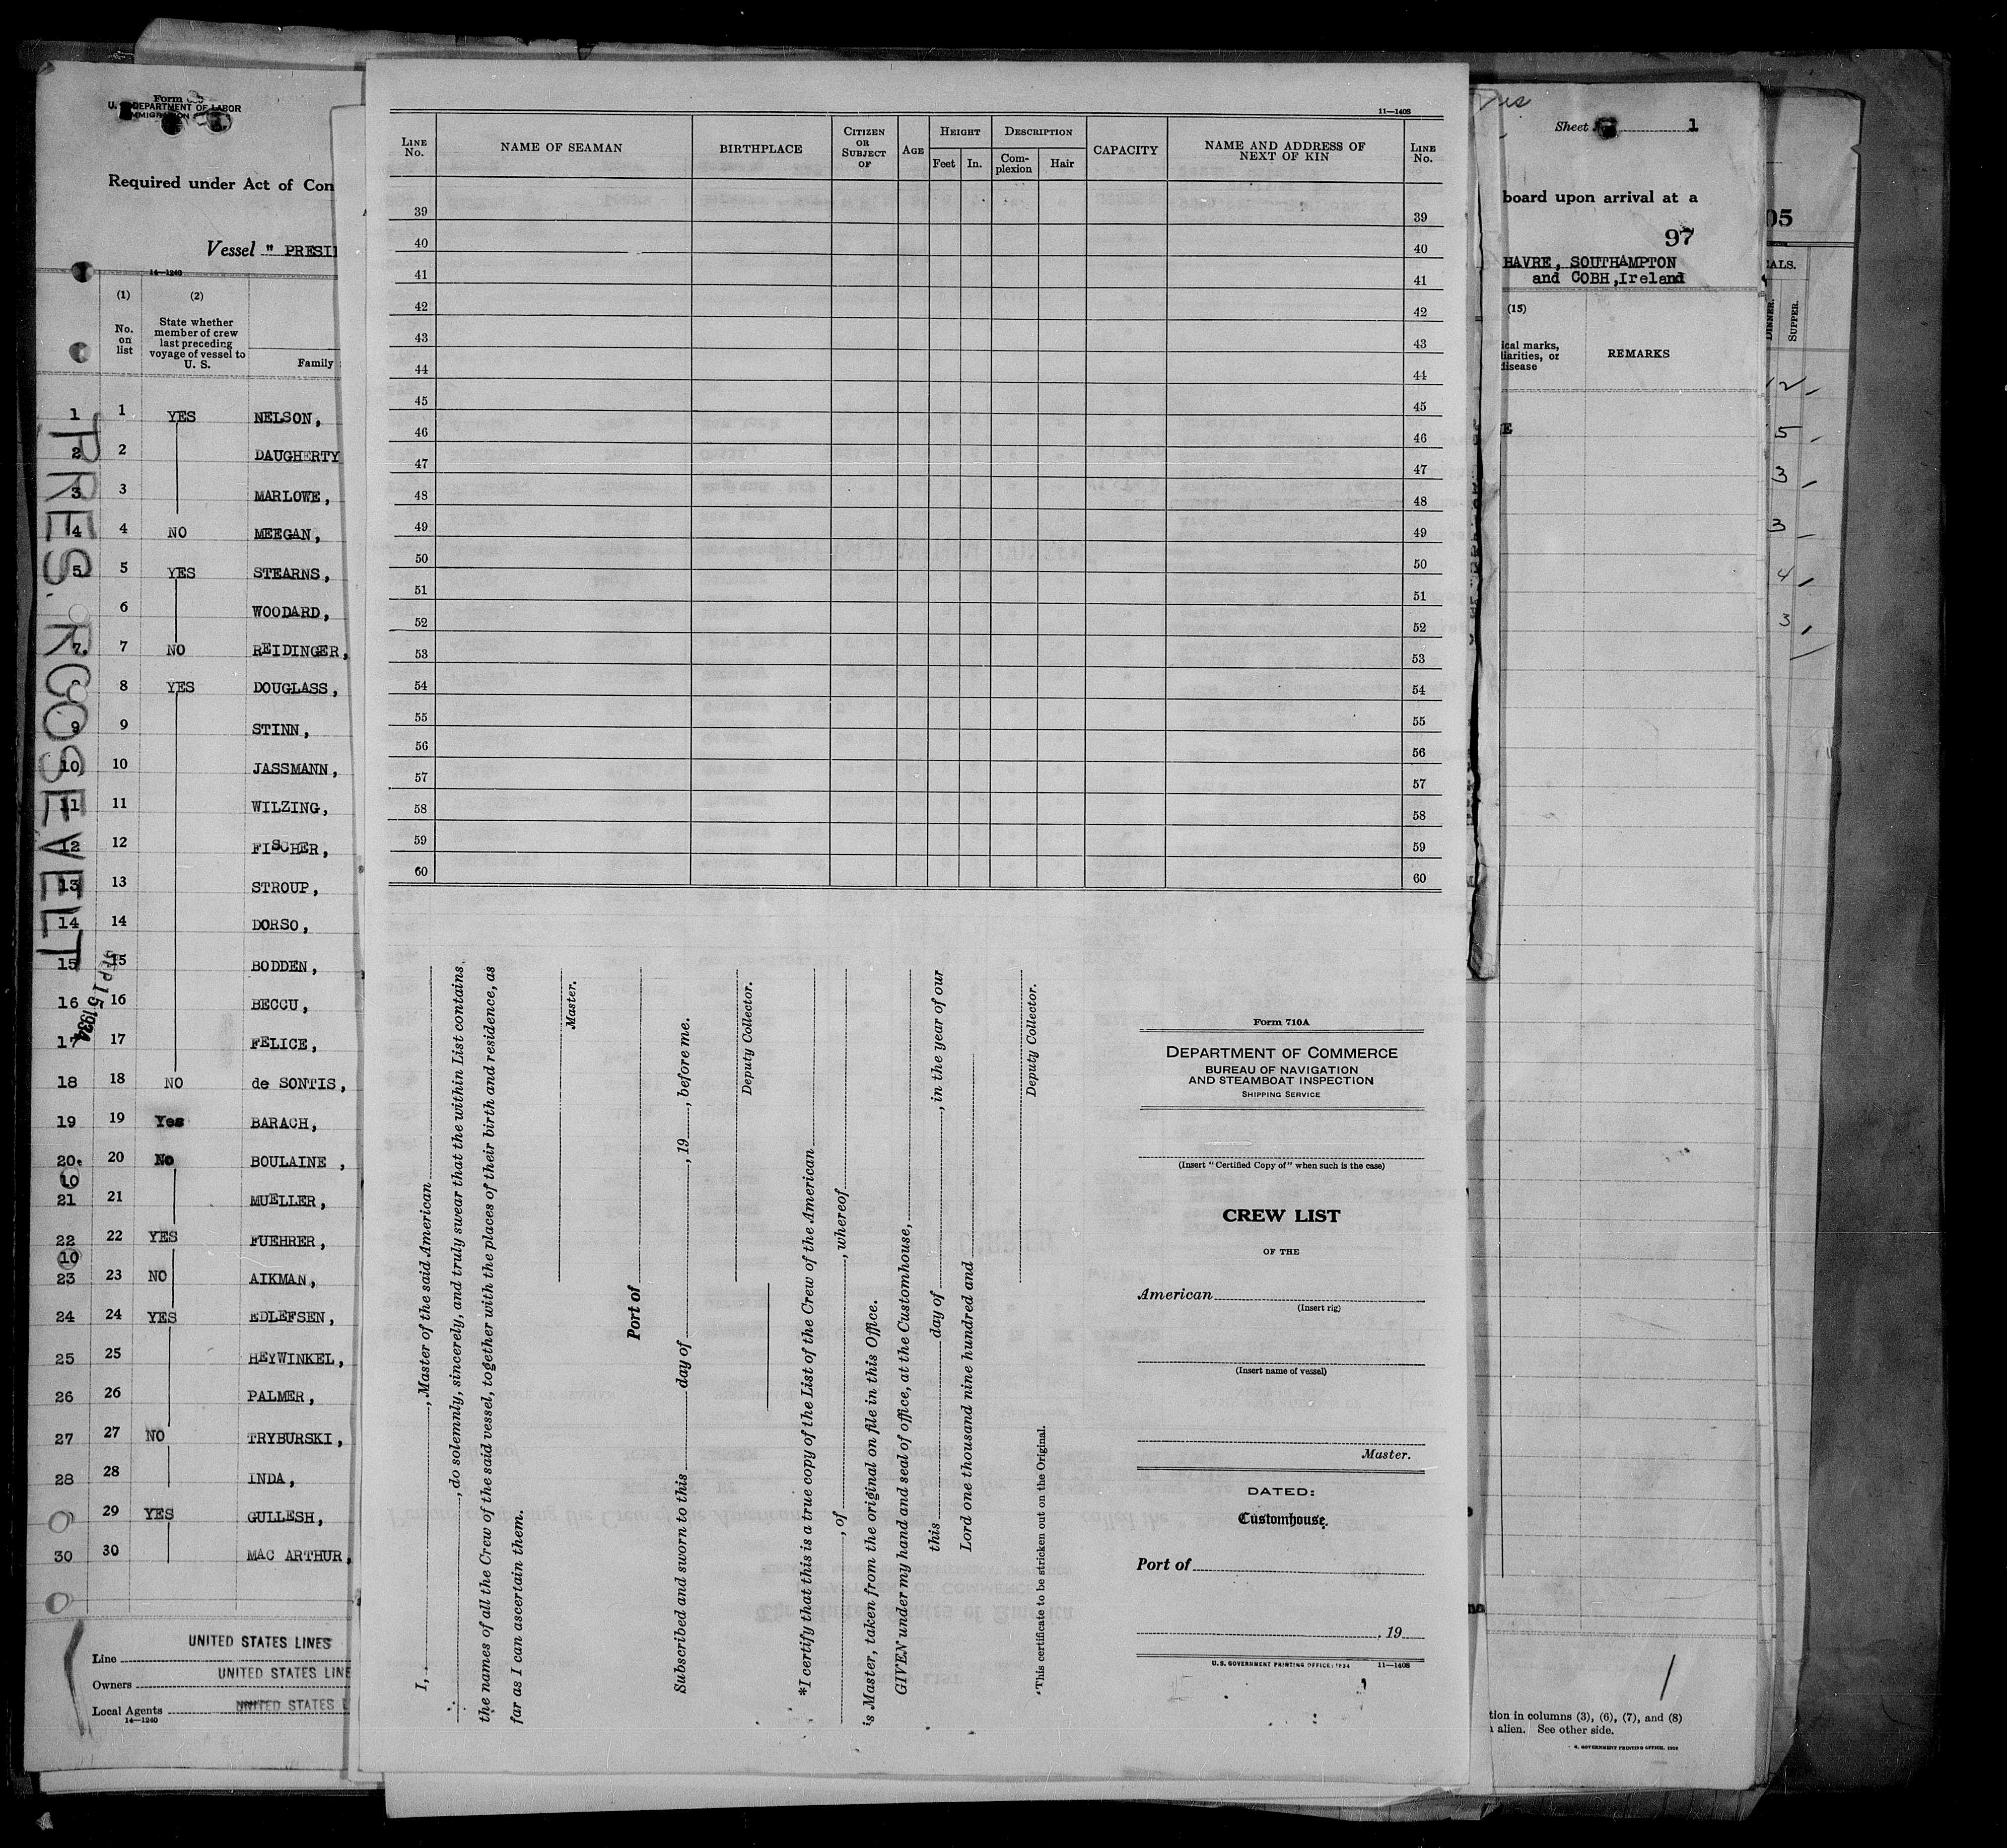 Form
U. DEPARTMENT OF LABOR
Required under Act of Con
Vessel " PRESI
14—1240
(1)
No. on list
(2)
State whether member of crew last preceding voyage of vessel to U. S.
Family
1 1 YES NELSON,
2 2 DAUGHERTY
3 3 MARLOWE,
4 4 NO MEEGAN,
5 5 YES STEARNS,
6 WOODARD,
7. 7 NO REIDINGER,
8 YES DOUGLASS,
9 9 STINN,
10 10 JASSMANN,
11 11 WILZING,
12 12 FISCHER,
13 13 STROUP,
14 14 DORSO,
15 15 BODDEN,
16 16 BECCU,
17 17 FELICE,
18 18 NO de SONTIS,
19 19 Yes BARACH,
20. 20 No BOULAINE ,
10
21 21 MUELLER,
22 22 YES FUEHRER,
10
23 23 NO AIKMAN,
24 24 YES EDLEFSEN,
25 25 HEYWINKEL,
26 26 PALMER,
27 27 NO TRYBURSKI,
28 28 INDA,
29 YES GULLESH,
30 30 MAC ARTHUR,
PRES. ROOSEVELT
SEP 15 1934
Line UNITED STATES LINES
Owners UNITED STATES LINE
Local Agents UNITED STATES L
14—1240
11—1408
LINE No.
NAME OF SEAMAN
BIRTHPLACE
CITIZEN OR SUBJECT OF
AGE
HEIGHT
Feet In.
DESCRIPTION
Complexion Hair
CAPACITY
NAME AND ADDRESS OF NEXT OF KIN
LINE No.
39 39
40 40
41 41
42 42
43 43
44 44
45 45
46 46
47 47
48 48
49 49
50 50
51 51
52 52
53 53
54 54
55 55
56 56
57 57
58 58
59 59
60 60
I, , Master of the said American
, do solemnly, sincerely, and truly swear that the within List contains
the names of all the Crew of the said vessel, together with the places of their birth and residence, as
far as I can ascertain them.
Master.
Port of
Subscribed and sworn to this day of , 19 , before me.
Deputy Collector.
*I certify that this is a true copy of the List of the Crew of the American
, of , whereof
is Master, taken from the original on file in this Office.
GIVEN under my hand and seal of office, at the Customhouse,
this day of , in the year of our
Lord one thousand nine hundred and
Deputy Collector.
*This certificate to be stricken out on the Original.
Form 710A
DEPARTMENT OF COMMERCE
BUREAU OF NAVIGATION
AND STEAMBOAT INSPECTION
SHIPPING SERVICE
(Insert "Certified Copy of" when such is the case)
CREW LIST
OF THE
American
(Insert rig)
(Insert name of vessel)
Master.
DATED:
Customhouse,
Port of
, 19
U.S. GOVERNMENT PRINTING OFFICE: 1934 11—1408
Sheet 1
board upon arrival at a
97
HAVRE, SOUTHAMPTON
and COBH,Ireland
(15)
ical marks,
liarities, or
disease
REMARKS
E
tion in columns (3), (6), (7), and (8)
alien. See other side.
GOVERNMENT PRINTING OFFICE.
05
ALS.
DINNER.
SUPPER.
12
5
3
3
4
3